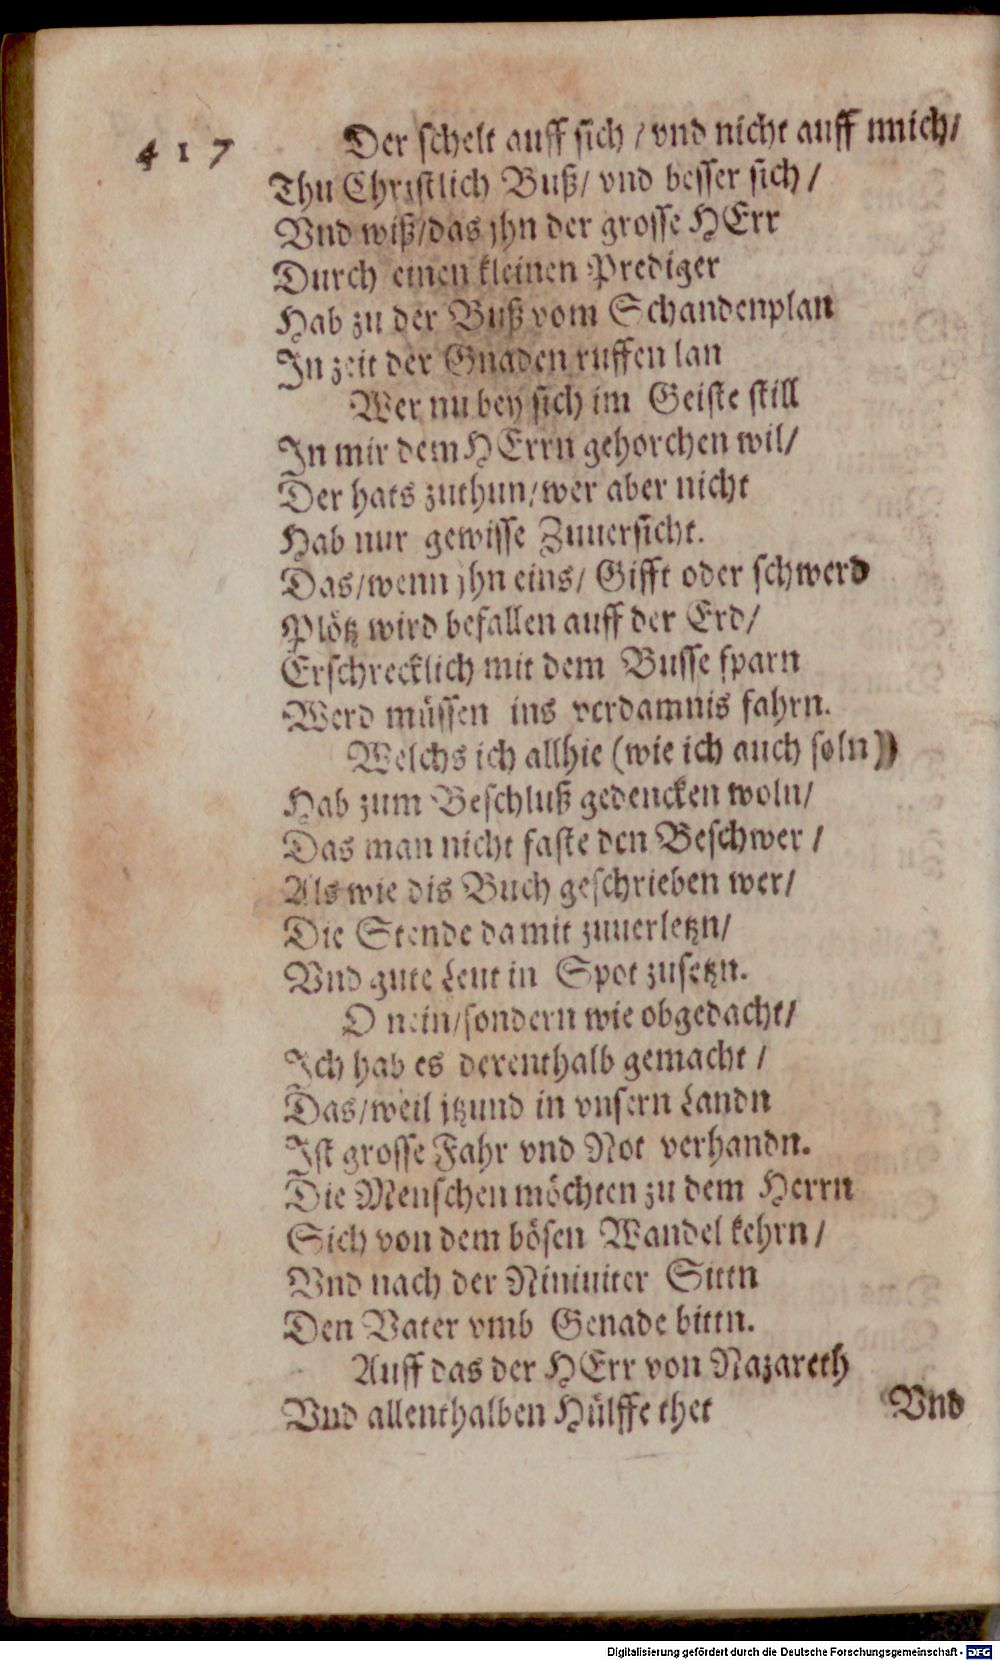 417 Der schelt auff sich / vnd nicht auff mich/
Thu Christlich Buß/ vnd besser sich /
Vnd wiß/das jhn der grosse HErr
Durch einen kleinen Prediger
Hab zu der Buß vom Schandenplan
In zeit der Gnaden ruffen lan
Wer nu bey sich im Geiste still
In mir dem HErrn gehorchen wil/
Der hats zuthun/wer aber nicht
Hab nur gewisse Zuuersicht.
Das/wenn jhn eins/ Gifft oder schwerd
Plötz wird befallen auff der Erd/
Erschrecklich mit dem Busse sparn
Werd müssen ins verdamnis fahrn.
Welchs ich allhie (wie ich auch soln))
Hab zum Beschluß gedencken woln/
Das man nicht faste den Beschwer /
Als wie dis Buch geschrieben wer/
Die Stende damit zuuerletzn/
Vnd gute Leut in Spot zusetzn.
O nein/sondern wie obgedacht/
Ich hab es derenthalb gemacht /
Das/weil jtzund in vnsern Landn
Ist grosse Fahr vnd Not verhandn.
Die Menschen möchten zu dem Herrn
Sich von dem bösen Wandel kehrn /
Vnd nach der Niniuiter Sittn
Den Vater vmb Genade bittn.
Auff das der HErr von Nazareth
Vnd allenthalben Hülffe thet
Vnd
Digitalisierung gefördert durch die Deutsche Forschungsgemeinschaft - DFG